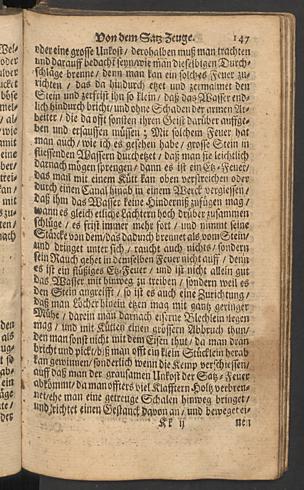 Von dem Satz Zeuge. 147
oder eine grosse Unkost / derohalben muß man trachten
und darauff bedacht seyn / wie man dieselbigen Durch-
schläge brenne / denn man kan ein solches Feuer zu-
richten / das da hindurch etzt und zermalmet den
Stein und zerfrist ihn so klein / daß das Wasser end-
lich hindurch bricht / und ohne Schaden der armen Ar-
beiter / die da offt sonsten ihren Geist darüber auffge-
ben und ersauffen müssen; Mit solchem Feuer hat
man auch / wie ich es gesehen habe / grosse Stein in
fliessenden Wassern durchetzet / daß man sie leichtlich
darnach mögen sprengen / dann es ist ein Etz-Feuer /
das man mit einem Kütt kan oben verstreichen oder
durch einen Canal hinab in einem Werck vergiessen /
daß ihm das Wasser keine Hinderniß zufügen mag /
wann es gleich etliche Lächtern hoch drüber zusammen
schlüge / es frist immer mehr fort / und nimmt seine
Stärcke von dem / das dadurch brennet als vom Stein /
und dringet unter sich / raucht auch nichts / sondern
sein Rauch gehet in demselben Feuer nicht auff / denn
es ist ein flüßiges Etz-Feuer / und ist nicht allein gut
das Wasser mit hinweg zu treiben / sondern weil es
den Stein angreifft / so ist es auch eine Zurichtung /
daß man Löcher hinein etzen mag mit gantz geringer
Mühe / darein man darnach eiserne Blechlein legen
mag / und mit Kütten einen grössern Abbruch thun /
den man sonst nicht mit dem Eisen thut / da man dran
bricht und pickt / biß man offt ein klein Stücklein herab
kan gewinnen / sonderlich wenn die Kemp verschiessen /
auff daß man der grausamen Unkost der Satz-Feuer
abkommt / da man offters viel Klafftern Holtz verbren-
net / ehe man eine getreuge Schalen hinweg bringet /
und richtet einen Gestanck davon an / und beweget ei-
Kk ij ne n